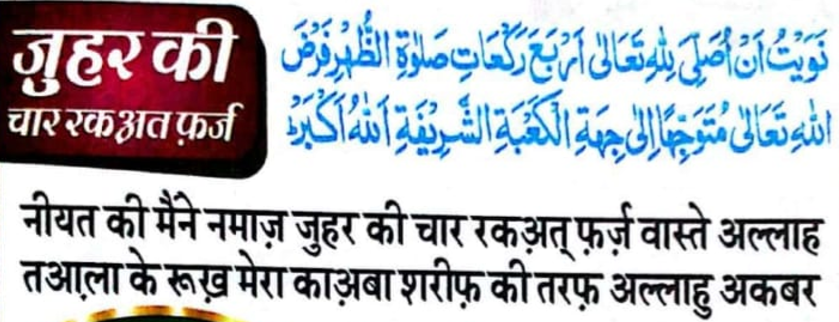 जुहर की
चार रकअत फ़र्ज
نَوَيْتُ اَنْ اُصَلِّىَ لِلّٰهِ تَعَالٰى اَرْبَعَ رَكْعَاتِ صَلٰوةِ الظُّهْرِ فَرْضَ
اللّٰهِ تَعَالٰى مُتَوَجِّهًا اِلٰى جِهَةِ الْكَعْبَةِ الشَّرِيْفَةِ اَللّٰهُ اَكْبَرُ
नीयत की मैने नमाज़ जुहर की चार रकअ़त् फ़र्ज़ वास्ते अल्लाह
तआ़ला के रूख़ मेरा काअ़बा शरीफ़ की तरफ़ अल्लाहु अकबर